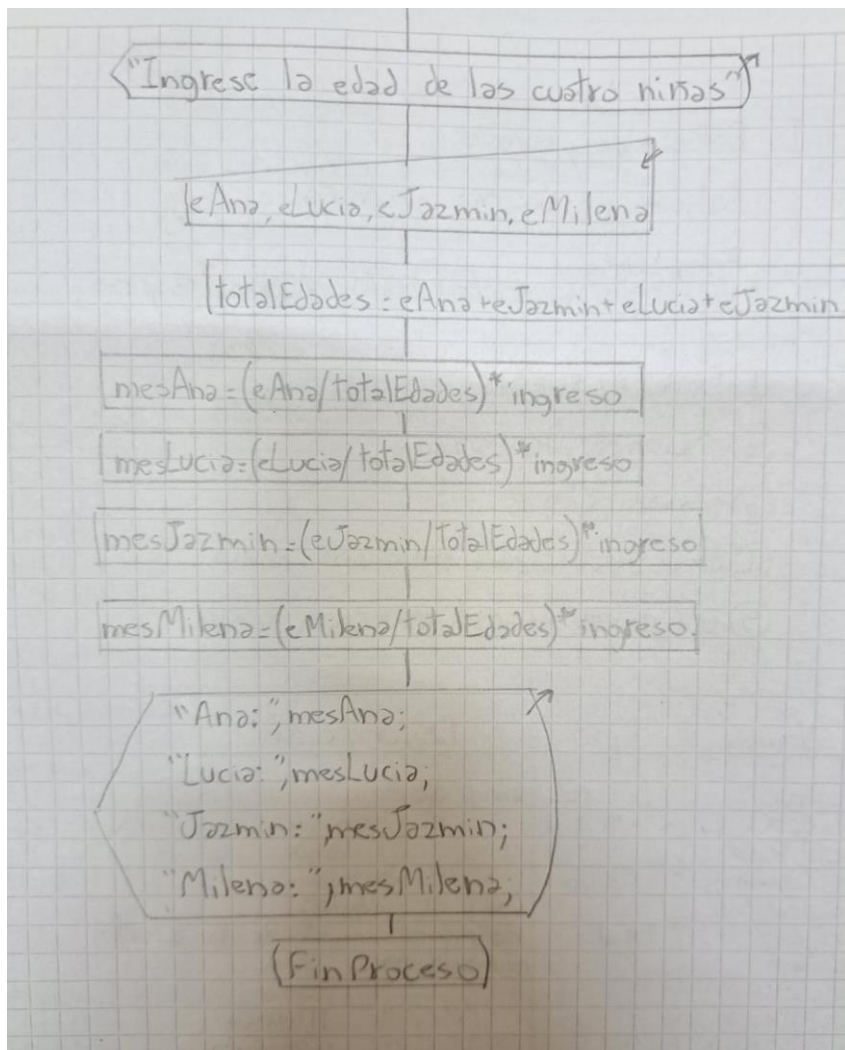 "Ingrese la edad de las cuatro niñas"
eAna, eLucia, eJazmin, eMilena
totalEdades = eAna + eJazmin + eLucia + eJazmin
mesAna=(eAna/totalEdades)*ingreso
mesLucia=(eLucia/totalEdades)*ingreso
mesJazmin=(eJazmin/TotalEdades)*ingreso
mesMilena=(eMilena/totalEdades)*ingreso.
"Ana:",mesAna;
"Lucia:",mesLucia;
"Jazmin:",mesJazmin;
"Milena:",mesMilena;
FinProceso